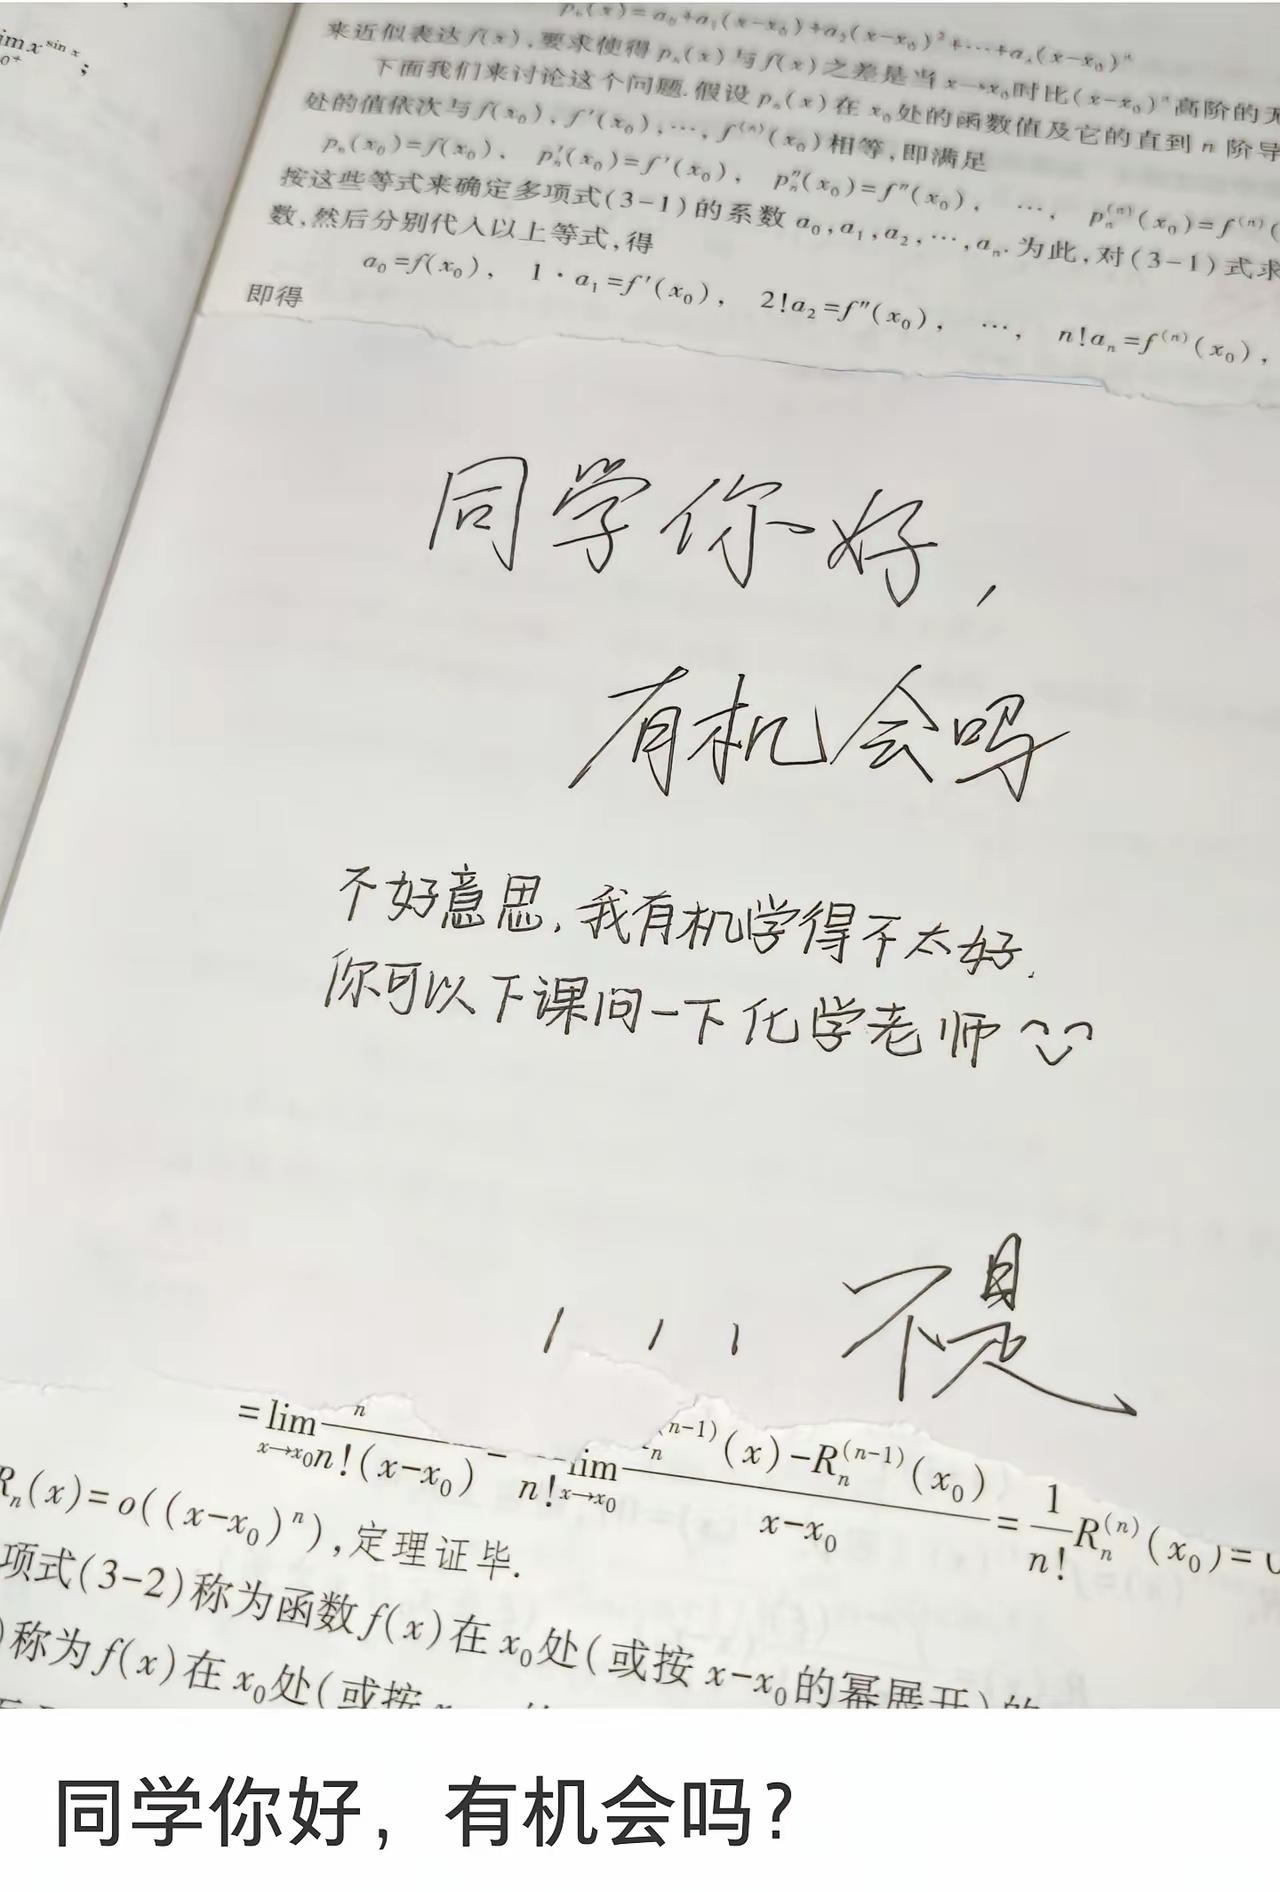 imx^{sin x};
0⁺
pₙ(x)=a₀+a₁(x-x₀)+a₂(x-x₀)²+…+aₙ(x-x₀)ⁿ
来近似表达f(x),要求使得pₙ(x)与f(x)之差是当x→x₀时比(x-x₀)ⁿ高阶的无
下面我们来讨论这个问题.假设pₙ(x)在x₀处的函数值及它的直到n阶导
处的值依次与f(x₀),f′(x₀),…,f⁽ⁿ⁾(x₀)相等,即满足
pₙ(x₀)=f(x₀), pₙ′(x₀)=f′(x₀), pₙ″(x₀)=f″(x₀), …, pₙ⁽ⁿ⁾(x₀)=f⁽ⁿ⁾(
按这些等式来确定多项式(3-1)的系数a₀,a₁,a₂,…,aₙ.为此,对(3-1)式求
数,然后分别代入以上等式,得
a₀=f(x₀), 1·a₁=f′(x₀), 2!a₂=f″(x₀), …, n!aₙ=f⁽ⁿ⁾(x₀),
即得
同学你好,
有机会吗
不好意思,我有机学得不太好,
你可以下课问一下化学老师
, , , 不是
=lim n
x→x₀ n!(x-x₀) - n! lim x→x₀ ⁿ⁻¹⁾(x)-Rₙ⁽ⁿ⁻¹⁾(x₀) x-x₀ = 1 n! Rₙ⁽ⁿ⁾(x₀)=
Rₙ(x)=o((x-x₀)ⁿ),定理证毕.
项式(3-2)称为函数f(x)在x₀处(或按x-x₀的幂展开)的
)称为f(x)在x₀处(或按
同学你好，有机会吗？